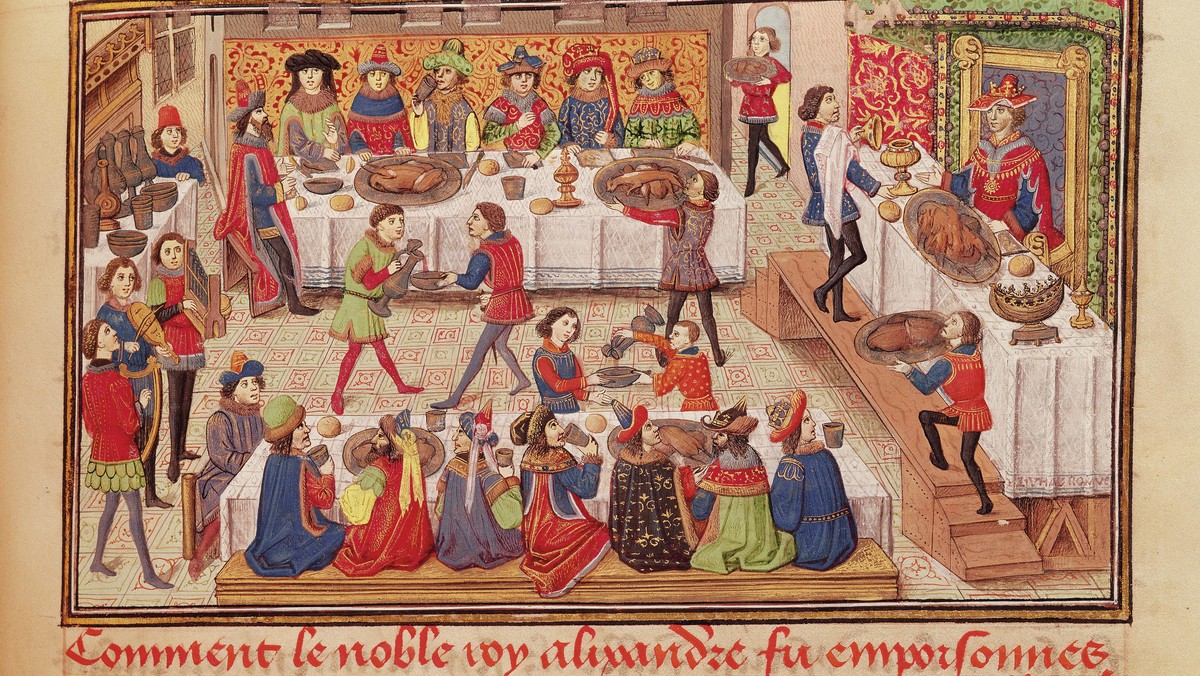 Comment le noble roy alixandre fu empoisonnes